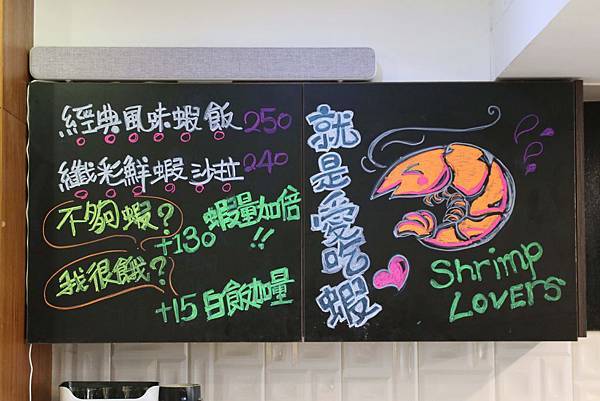 經典風味蝦飯 250
纖彩鮮蝦沙拉 240
不夠蝦？
+130 蝦量加倍!!
我很餓？
+15 白飯加量
就是愛吃蝦
Shrimp
LOVERS